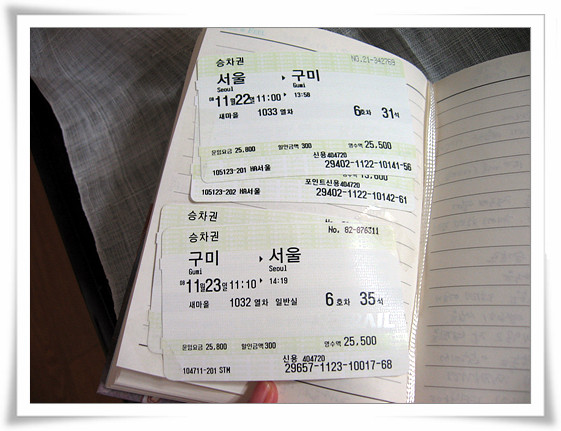 승차권
NO.21-342769
서울 ▸ 구미
Seoul Gumi
11월22일 11:00 ▸ 13:58
새마을 1033 열차 6호차 31석
운임요금 25,800 할인금액 300 영수액 25,500
신용 404720
105123-201 HA서울 29402-1122-10141-56
포인트신용404720
105123-202 HA서울 29402-1122-10142-61
승차권
승차권
No. 82-876311
구미 ▸ 서울
Gumi Seoul
11월23일 11:10 ▸ 14:19
새마을 1032 열차 일반실 6 호차 35석
운임요금 25,800 할인금액 300 영수액 25,500
신용 404720
104711-201 STM 29657-1123-10017-68